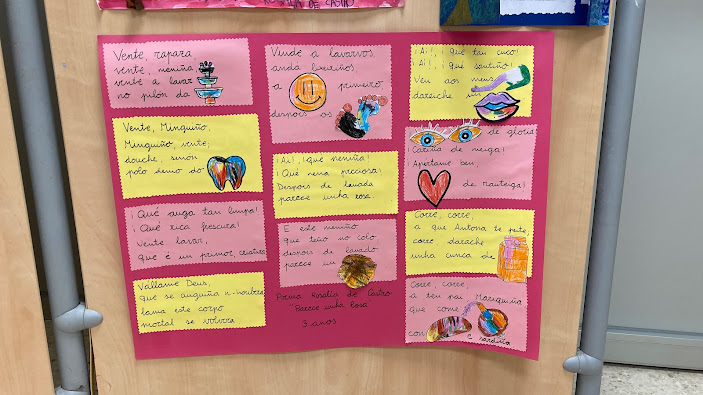 ROSALÍA DE CASTRO
Vente, rapaza
vente, meniña
vente a lavar
no pilón da
Vente, Minguiño,
Minguiño, vente;
douche, senon
polo demo do
¡Qué auga tan limpa!
¡Qué rica frescura!
Vente lavar,
que é un primor, criatura
Vállame Deus,
que se auguiña n-houbera
lama este corpo
mortal se volvera
Vinde a lavarvos,
anda
a primeiro
despois os
¡Ai!, ¡qué neniña!
¡Qué nena preciosa!
Despois de lavada
parece unha rosa.
E este meniño
que teño no colo,
despois de lavado
parece un
Poema Rosalía de Castro
"Parece unha Rosa"
3 anos
¡Ai!, ¡qué tan cuco!
¡Ai!, ¡qué
Ven aos meus
dareiche un
de gloria!
de meiga!
¡Apértame ben,
de manteiga!
Corre, corre,
a que Antona te peite,
corre, darache
unha cunca de
Corre, corre,
ó teu pai Mingunño
que come
con e sardiña